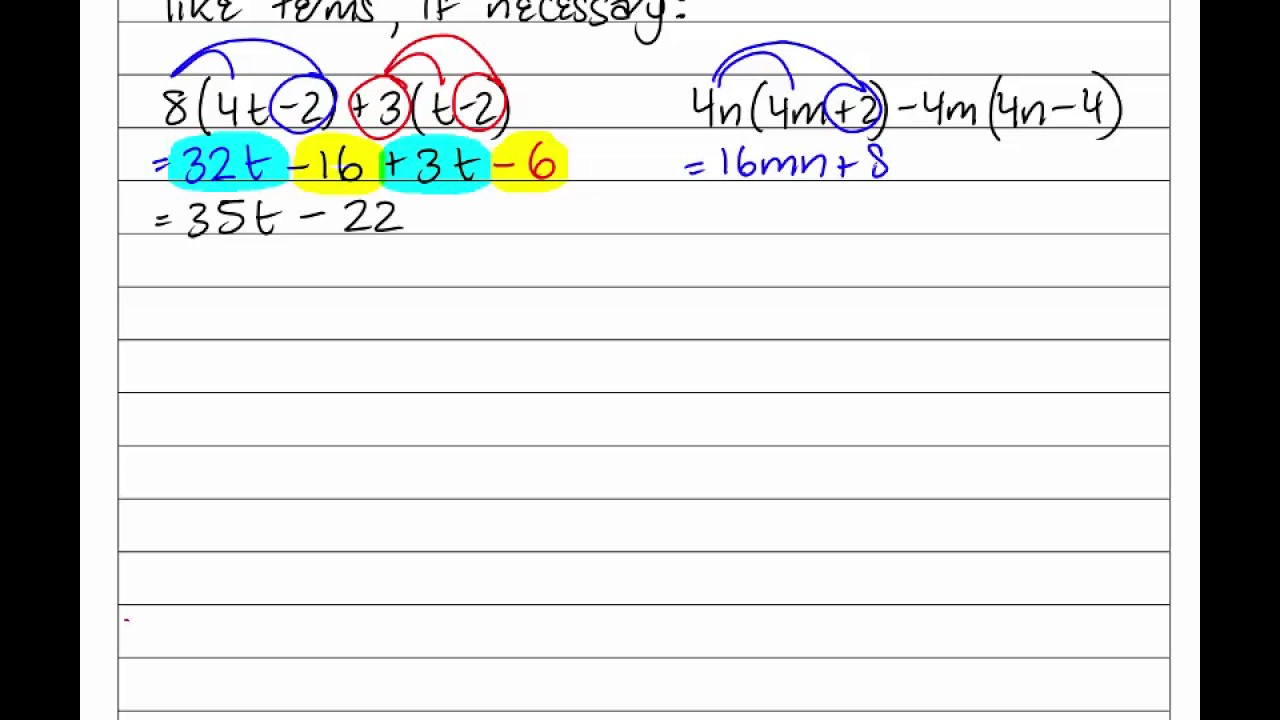 like terms, if necessary:
8(4t-2)+3(t-2)
=32t-16+3t-6
=35t-22
4n(4m+2)-4m(4n-4)
=16mn+8